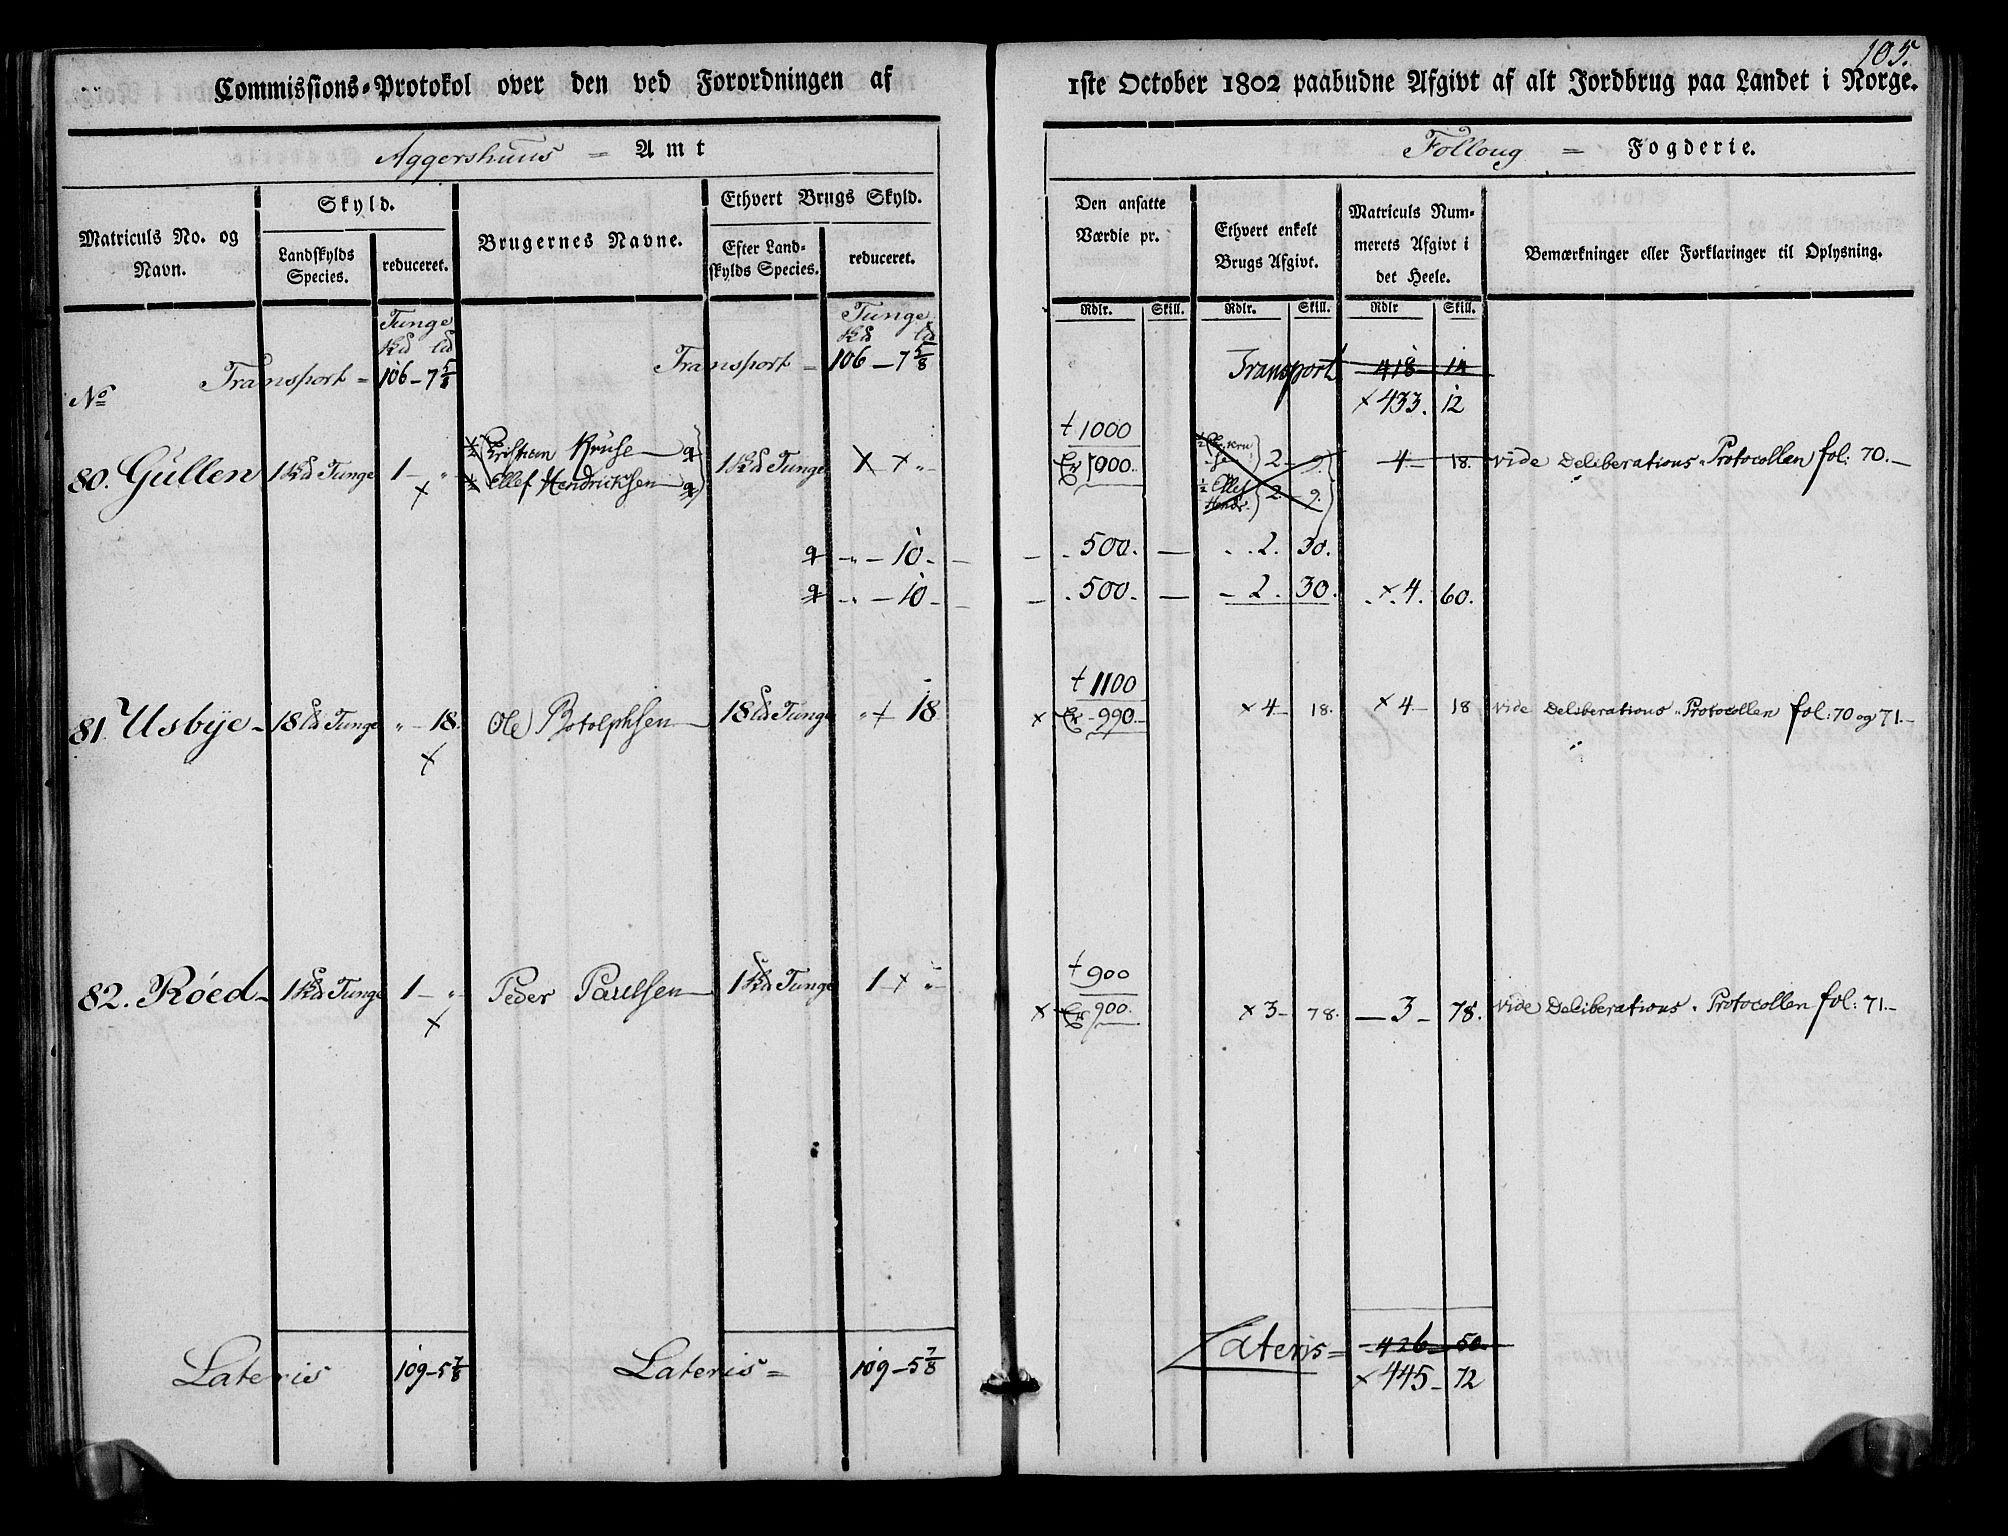 105.
Commissions-Protokol over den ved Forordningen af 1ste October 1802 paabudne Afgivt af alt Jordbrug paa Landet i Norge.
Aggershuus = Amt
Folloug = Fogderie.
Matriculs No. og Navn.
Skyld.
Landskylds Species.
reduceret.
Brugernes Navne.
Ethvert Brugs Skyld.
Efter Landskylds Species.
reduceret.
Den ansatte Værdie pr.
Ethvert enkelt Brugs Afgivt.
Matriculs Nummerets Afgivt i det Heele.
Bemærkninger eller Forklaringer til Oplysning.
Rdlr. Skill. Rdlr. Skill. Rdlr Skill.
Tunge Tunge
Transport = 106 - 7 5/8 Transport = 106 - 7 5/8 Transport 418 14
No × 433. 12
80. Gullen 1 Tunge 1 - „ ½ Christian Kruse 1 Tunge „ † 1000 2 - 9. 4 - 18. vide Deliberations-Protocollen fol: 70.
× ½ Ellef Hendrichsen 1000. ½ Ellef Hendr. 2 - 9.
„ - 10. 500. 2. 30.
„ - 10 500. 2. 30. × 4. 60.
† 1100
81 Usbÿe - 18 Tunge „ - 18. Ole Botolphsen 18 Tunge „ × 18 × 990 × 4 - 18. × 4 - 18 vide Deliberations-Protocollen fol: 70 og 71.
×
† 900
82. Röed - 1 Tunge 1 - „ Peder Paulsen 1 Tunge 1 × „ × 900. × 3 - 78. 3 - 78. vide Deliberations-Protocollen fol: 71.
×
Lateris 109 - 5 7/8 Lateris = 109 - 5 7/8 Lateris = 426 50.
× 445 - 72